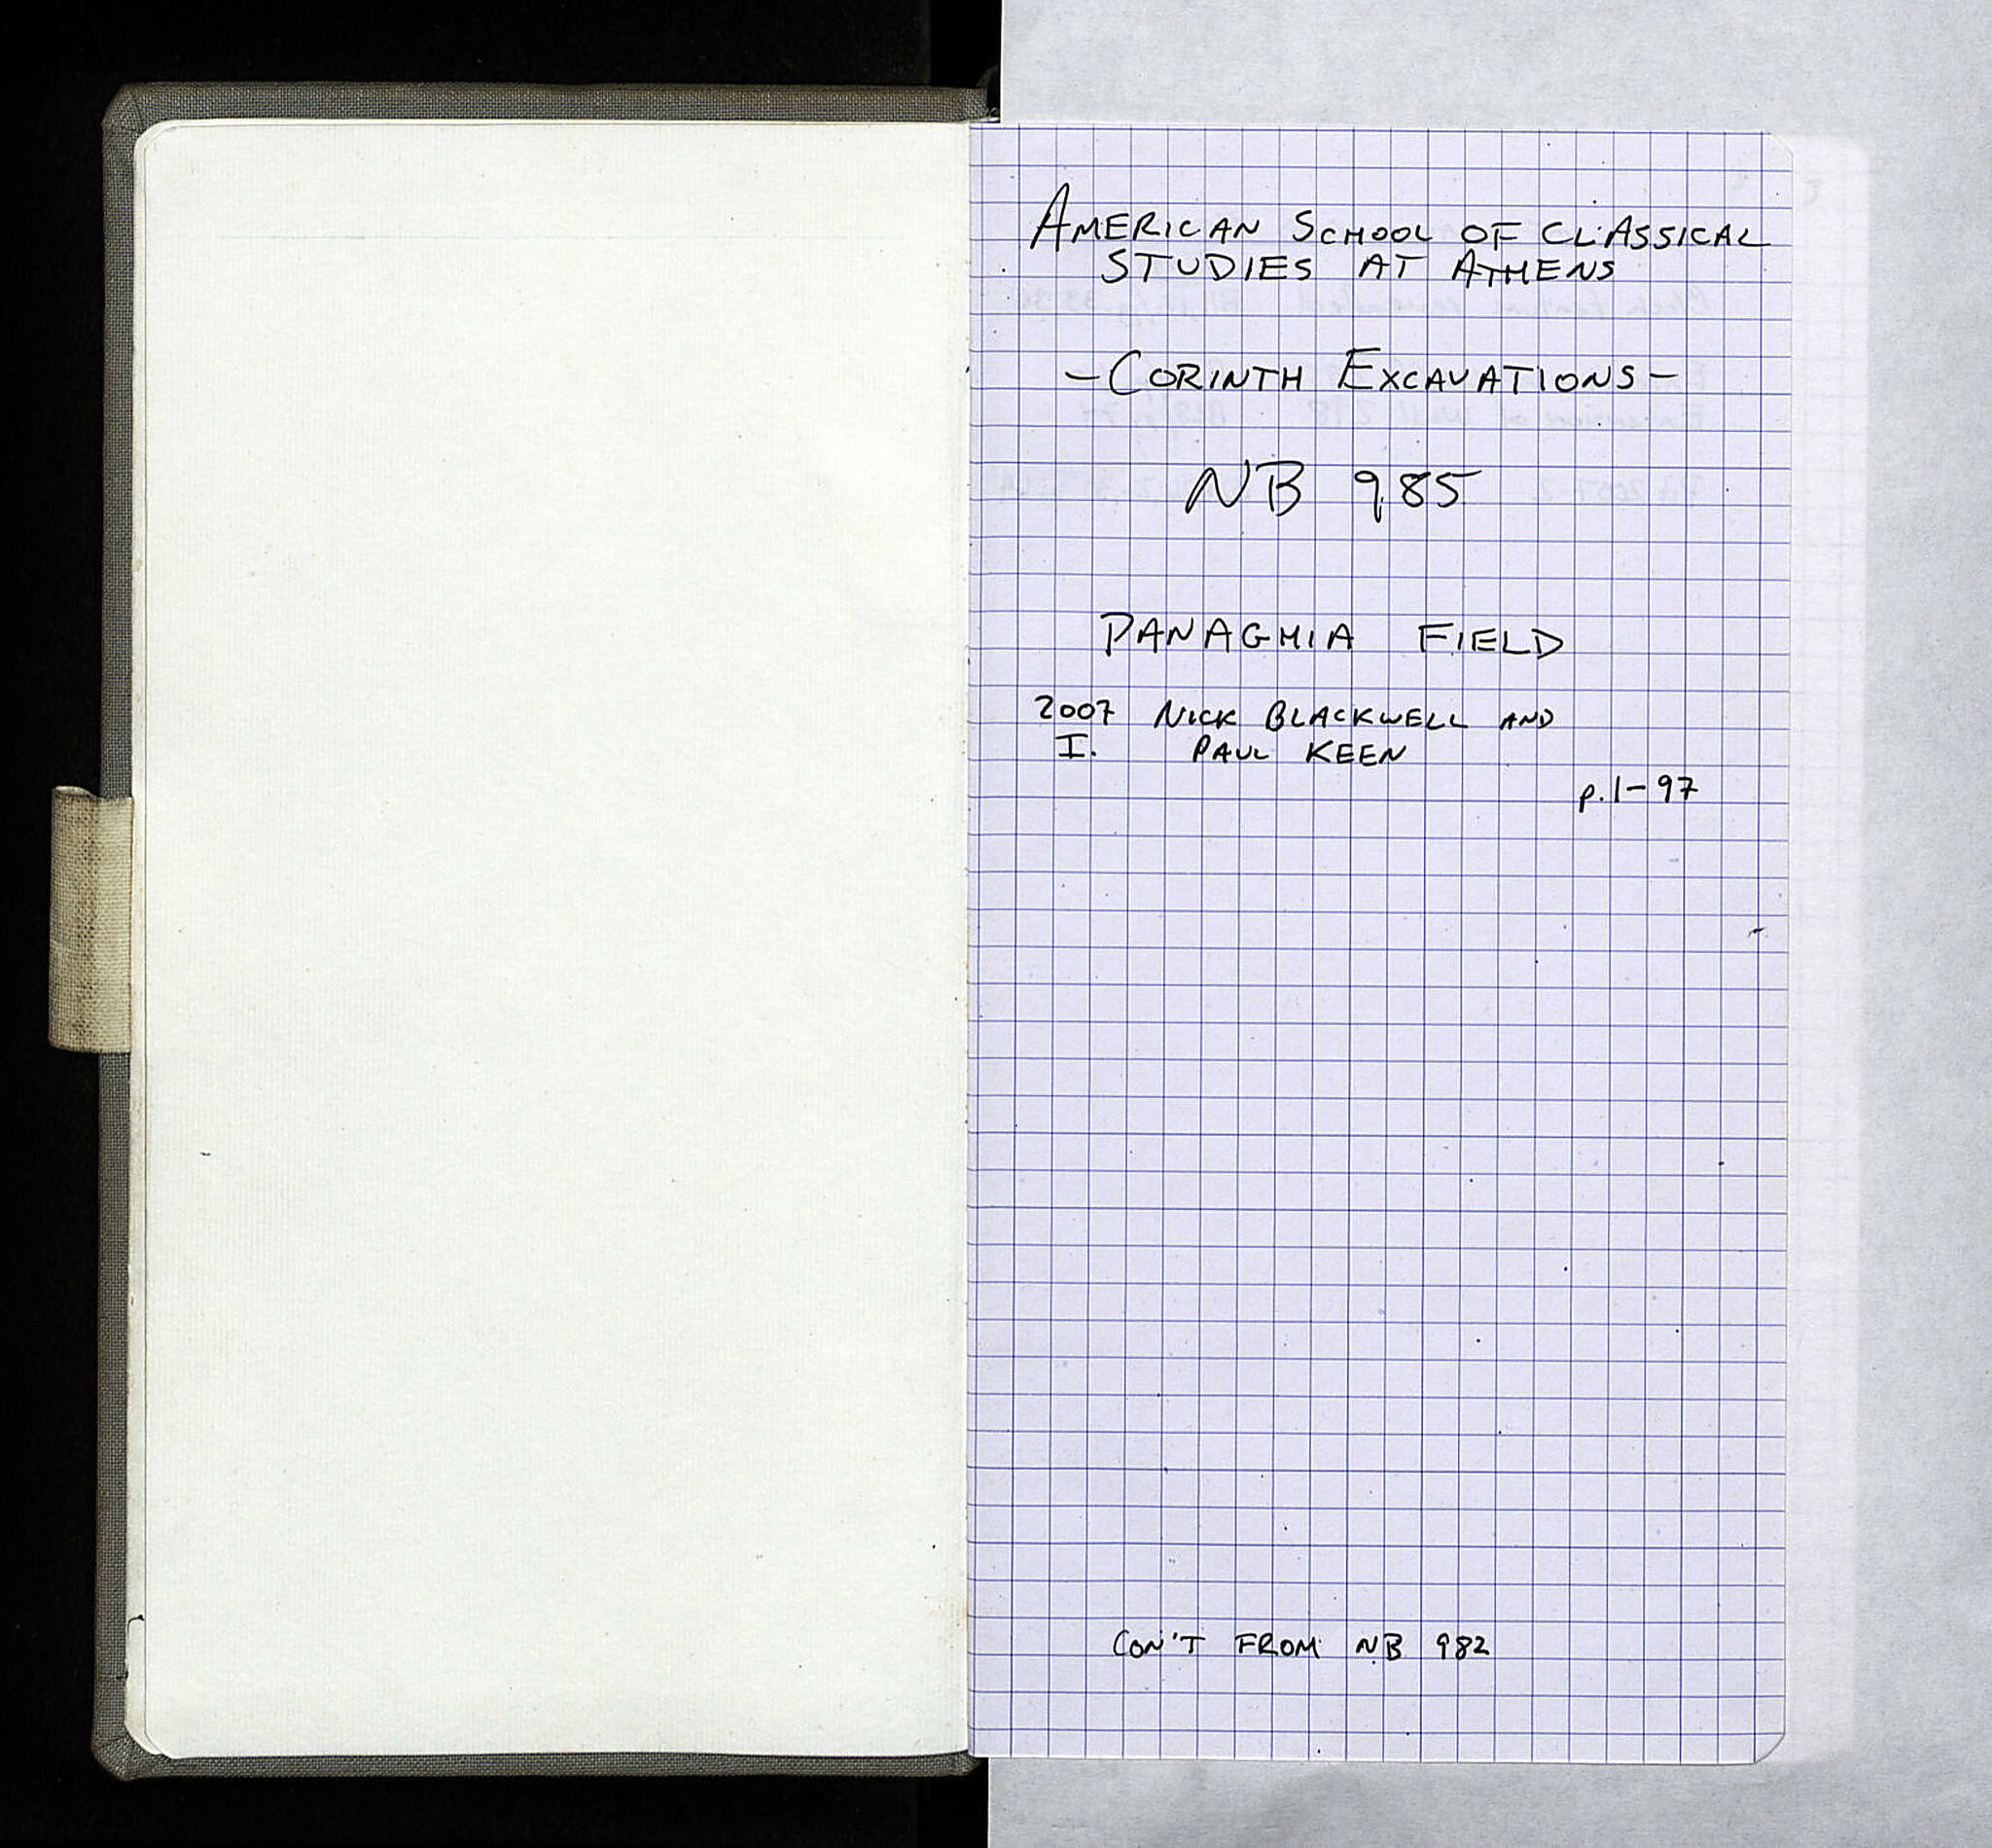 AMERICAN SCHOOL OF CLASSICAL
STUDIES AT ATHENS
- CORINTH EXCAVATIONS -
NB 985
PANAGHIA FIELD
2007 NICK BLACKWELL AND
I. PAUL KEEN
p. 1-97
CON'T FROM NB 982